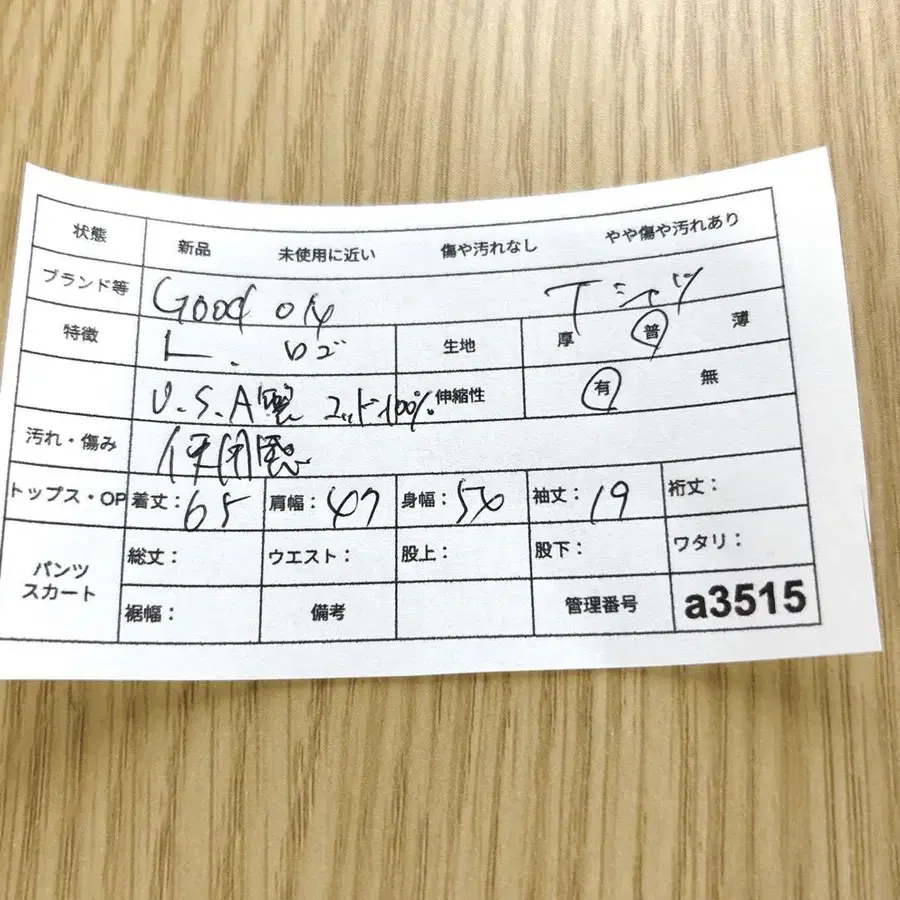 状態 新品 未使用に近い 傷や汚れなし やや傷や汚れあり
ブランド等 Good on Tシャツ
特徴 L. ロゴ 生地 厚 普 薄
U.S.A製 コットン100% 伸縮性 有 無
汚れ・傷み 使用感
トップス・OP 着丈：65 肩幅：47 身幅：56 袖丈：19 裄丈：
パンツ スカート 総丈： ウエスト： 股上： 股下： ワタリ：
裾幅： 備考 管理番号 a3515